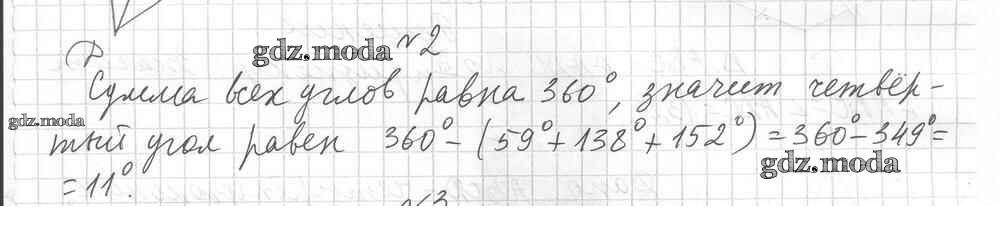 gdz.moda №2
Сумма всех углов равна 360°, значит четвёр-
gdz.moda
тый угол равен 360° - (59° + 138° + 152°) = 360° - 349° =
gdz.moda
= 11°.
№3